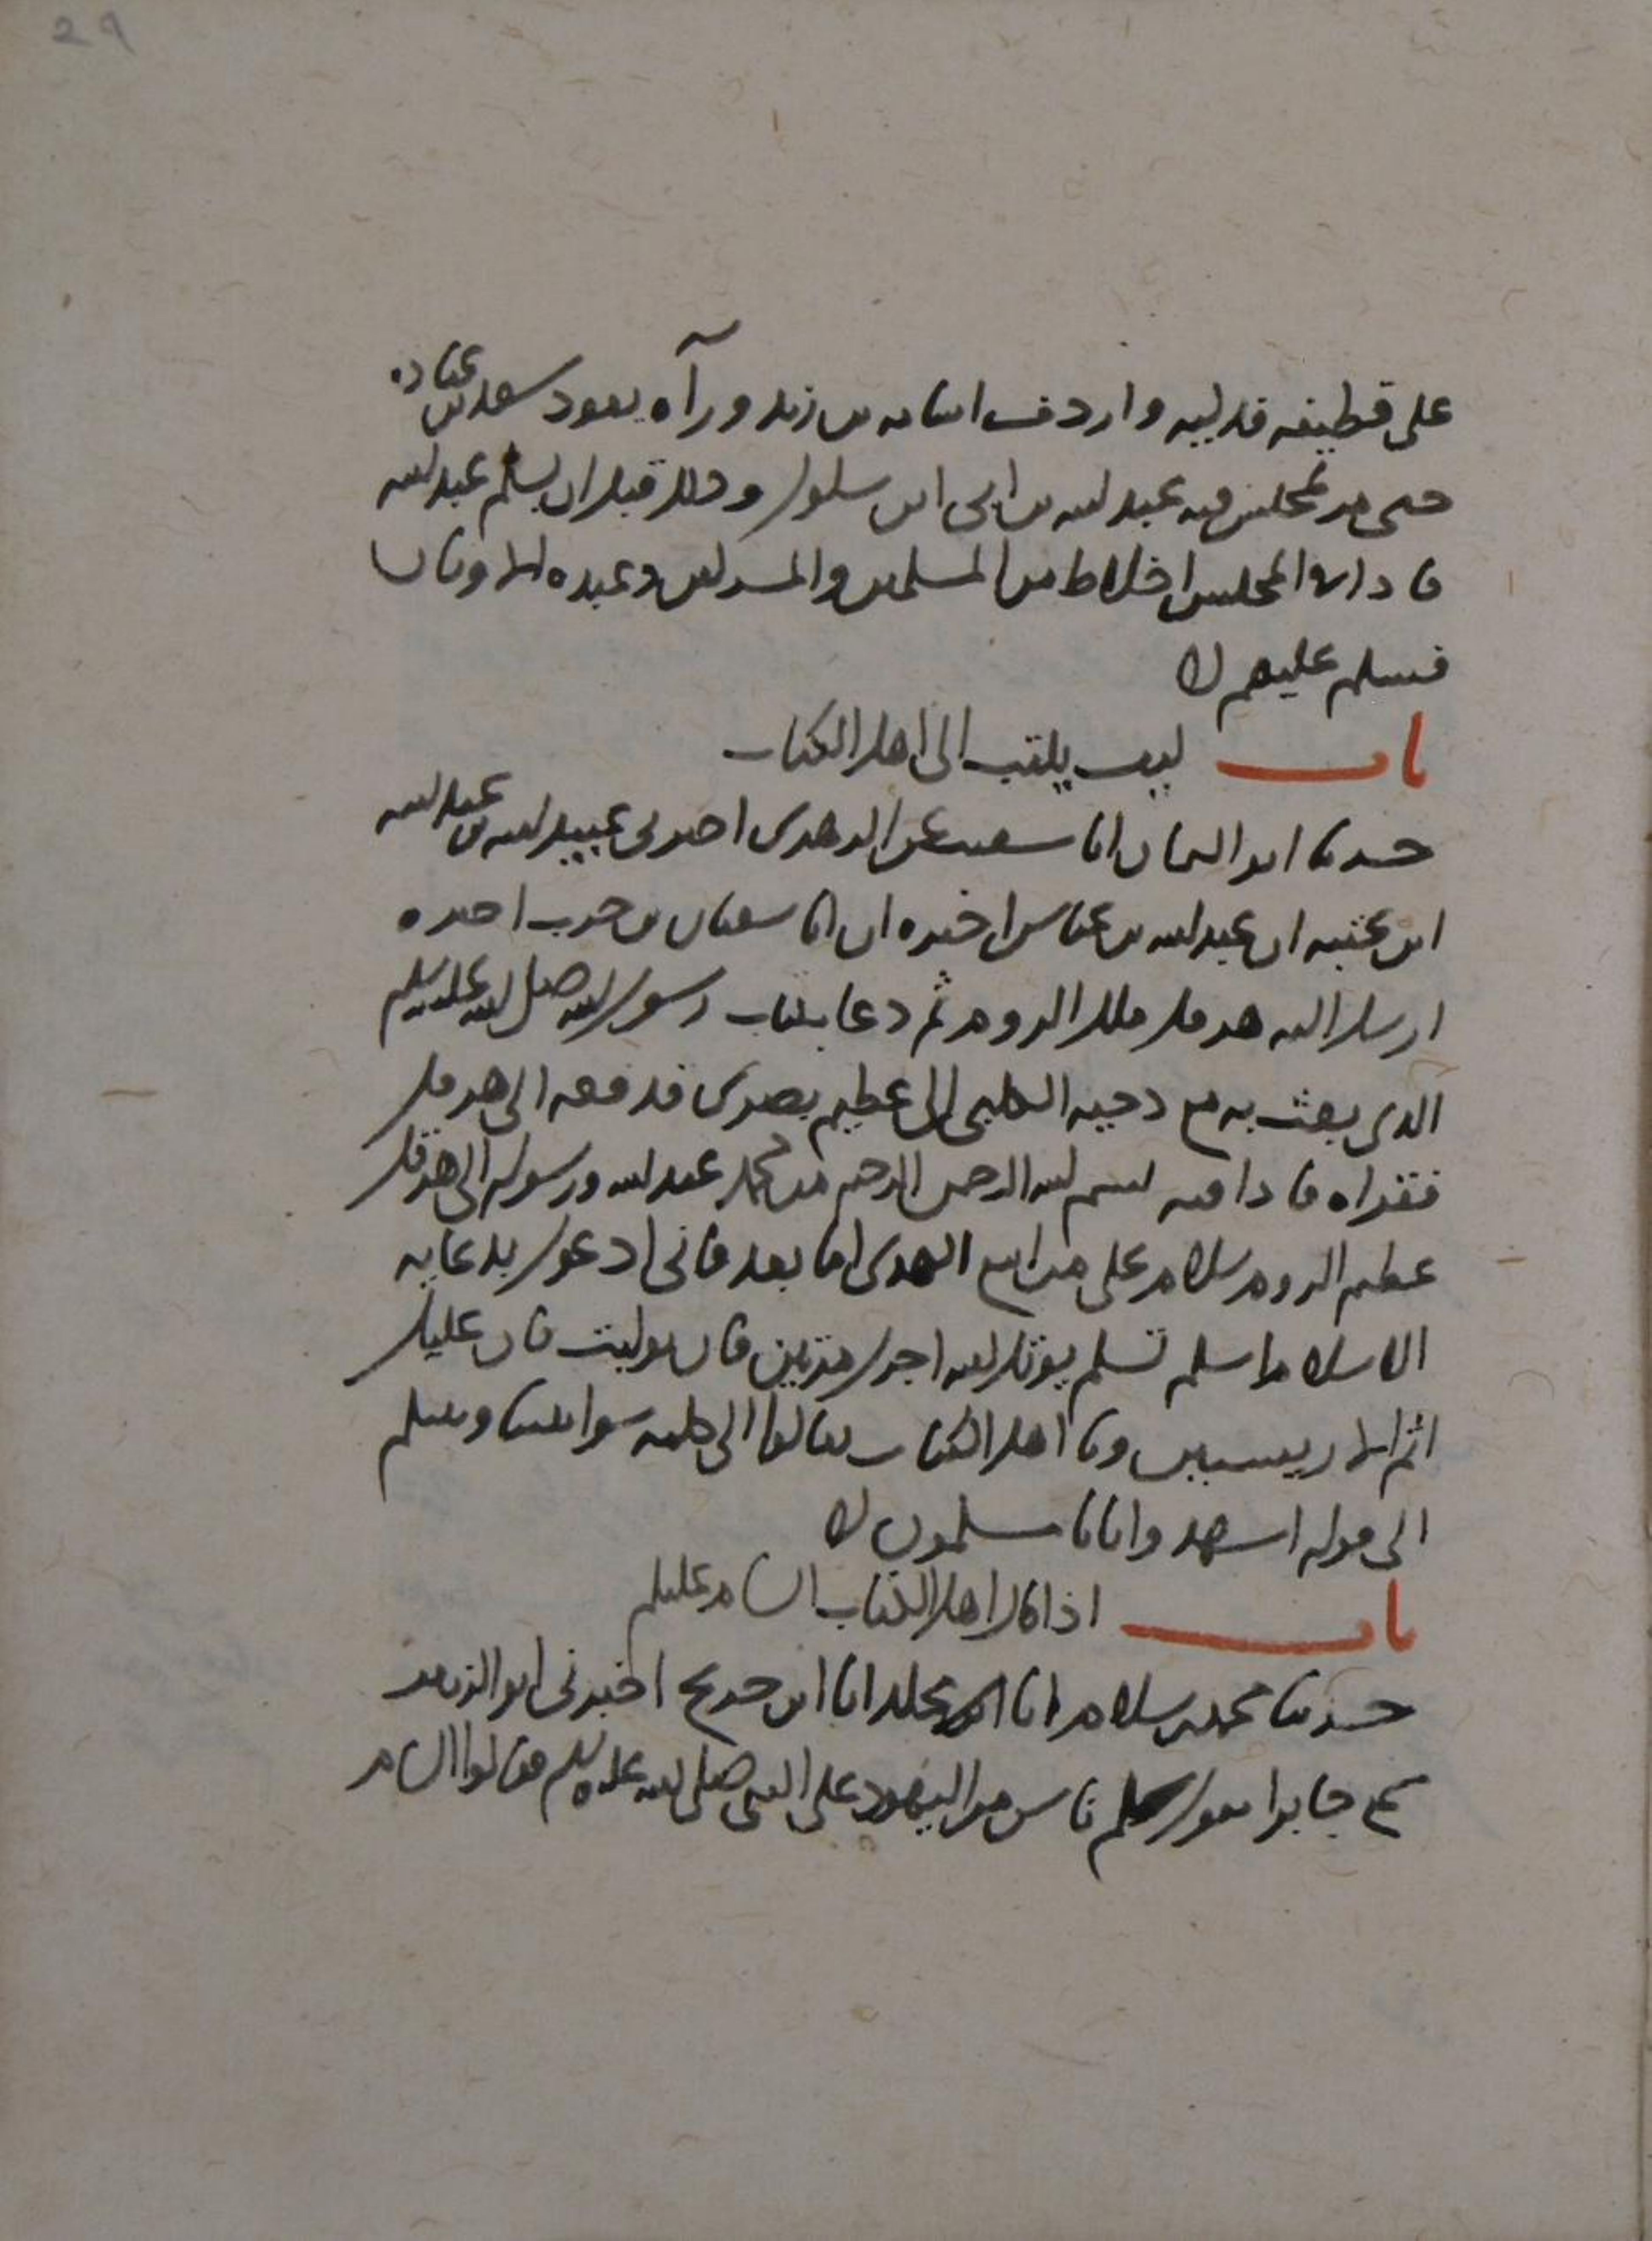 29
على قطيفه فدكيه واردف اسامه بن زيد ورآه يعود سعد بن عباده
حتى مر بمجلس فيه عبد الله بن ابى ابن سلول وذلك قبل ان يسلم عبد الله
فاذا فى المجلس اخلاط من المسلمين والمشركين وعبده الاوثان
فسلم عليهم
باب كيف يكتب الى اهل الكتاب
حدثنا ابو اليمان انا شعيب عن الزهرى اخبرنى عبيد الله بن عبد الله
ابن عتبه ان عبد الله بن عباس اخبره ان ابا سفيان بن حرب اخبره
ارسل اليه هرقل ملك الروم ثم دعا بكتاب رسول الله صلى الله عليه وسلم
الذى بعث به مع دحيه الكلبى الى عظيم بصرى فدفعه الى هرقل
فقراه فاذا فيه بسم الله الرحمن الرحيم من محمد عبد الله ورسوله الى هرقل
عظيم الروم سلام على من اتبع الهدى اما بعد فانى ادعوك بدعايه
الاسلام اسلم تسلم يوتك الله اجرك مرتين فان توليت فان عليك
اثم الاريسيين ويا اهل الكتاب تعالوا الى كلمه سوا بيننا وبينكم
الى قوله اشهدوا بانا مسلمون
باب اذا قال اهل الكتاب السام عليكم
حدثنا محمد بن سلام انا مخلد انا ابن جريج اخبرنى ابو الزبير
سمع جابرا يقول سلم ناس من اليهود على النبى صلى الله عليه وسلم فقالوا السام